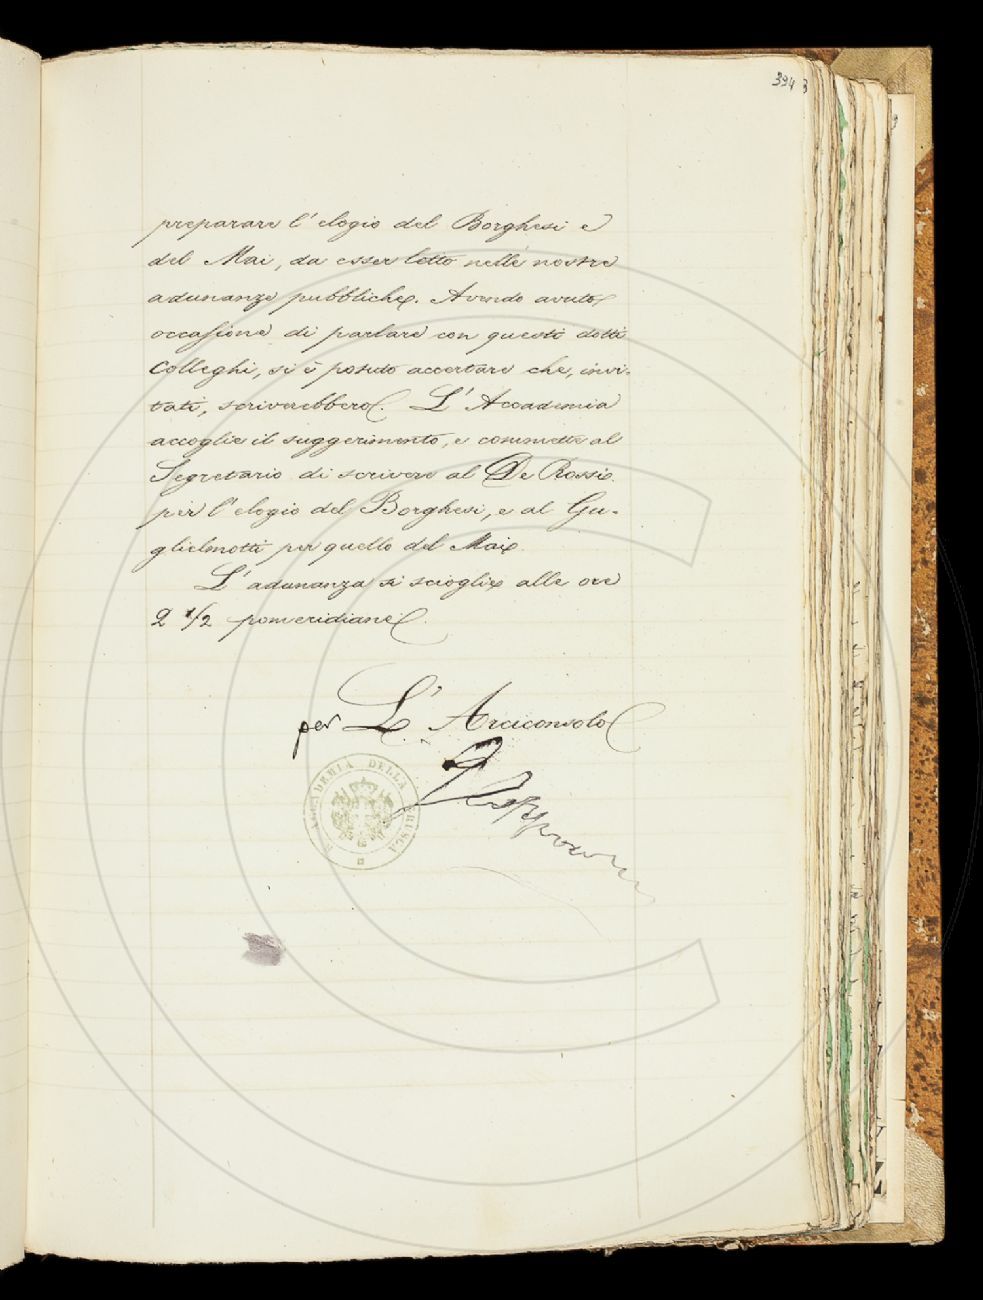 394
preparare l' elogio del Borghesi e
del Mai, da esser letto nelle nostre
adunanze pubbliche. Avendo avuto
occasione di parlare con questi dotti
Colleghi, si è potuto accertare che, invi-
tati, scriverebbero. L' Accademia
accoglie il suggerimento, e commette al
Segretario di scrivere al De Rossi
per l' elogio del Borghesi, e al Gu-
glielmotti per quello del Mai.
L' adunanza si scioglie alle ore
2 1/2 pomeridiane.
per L' Arciconsolo
R. ACCADEMIA DELLA CRUSCA